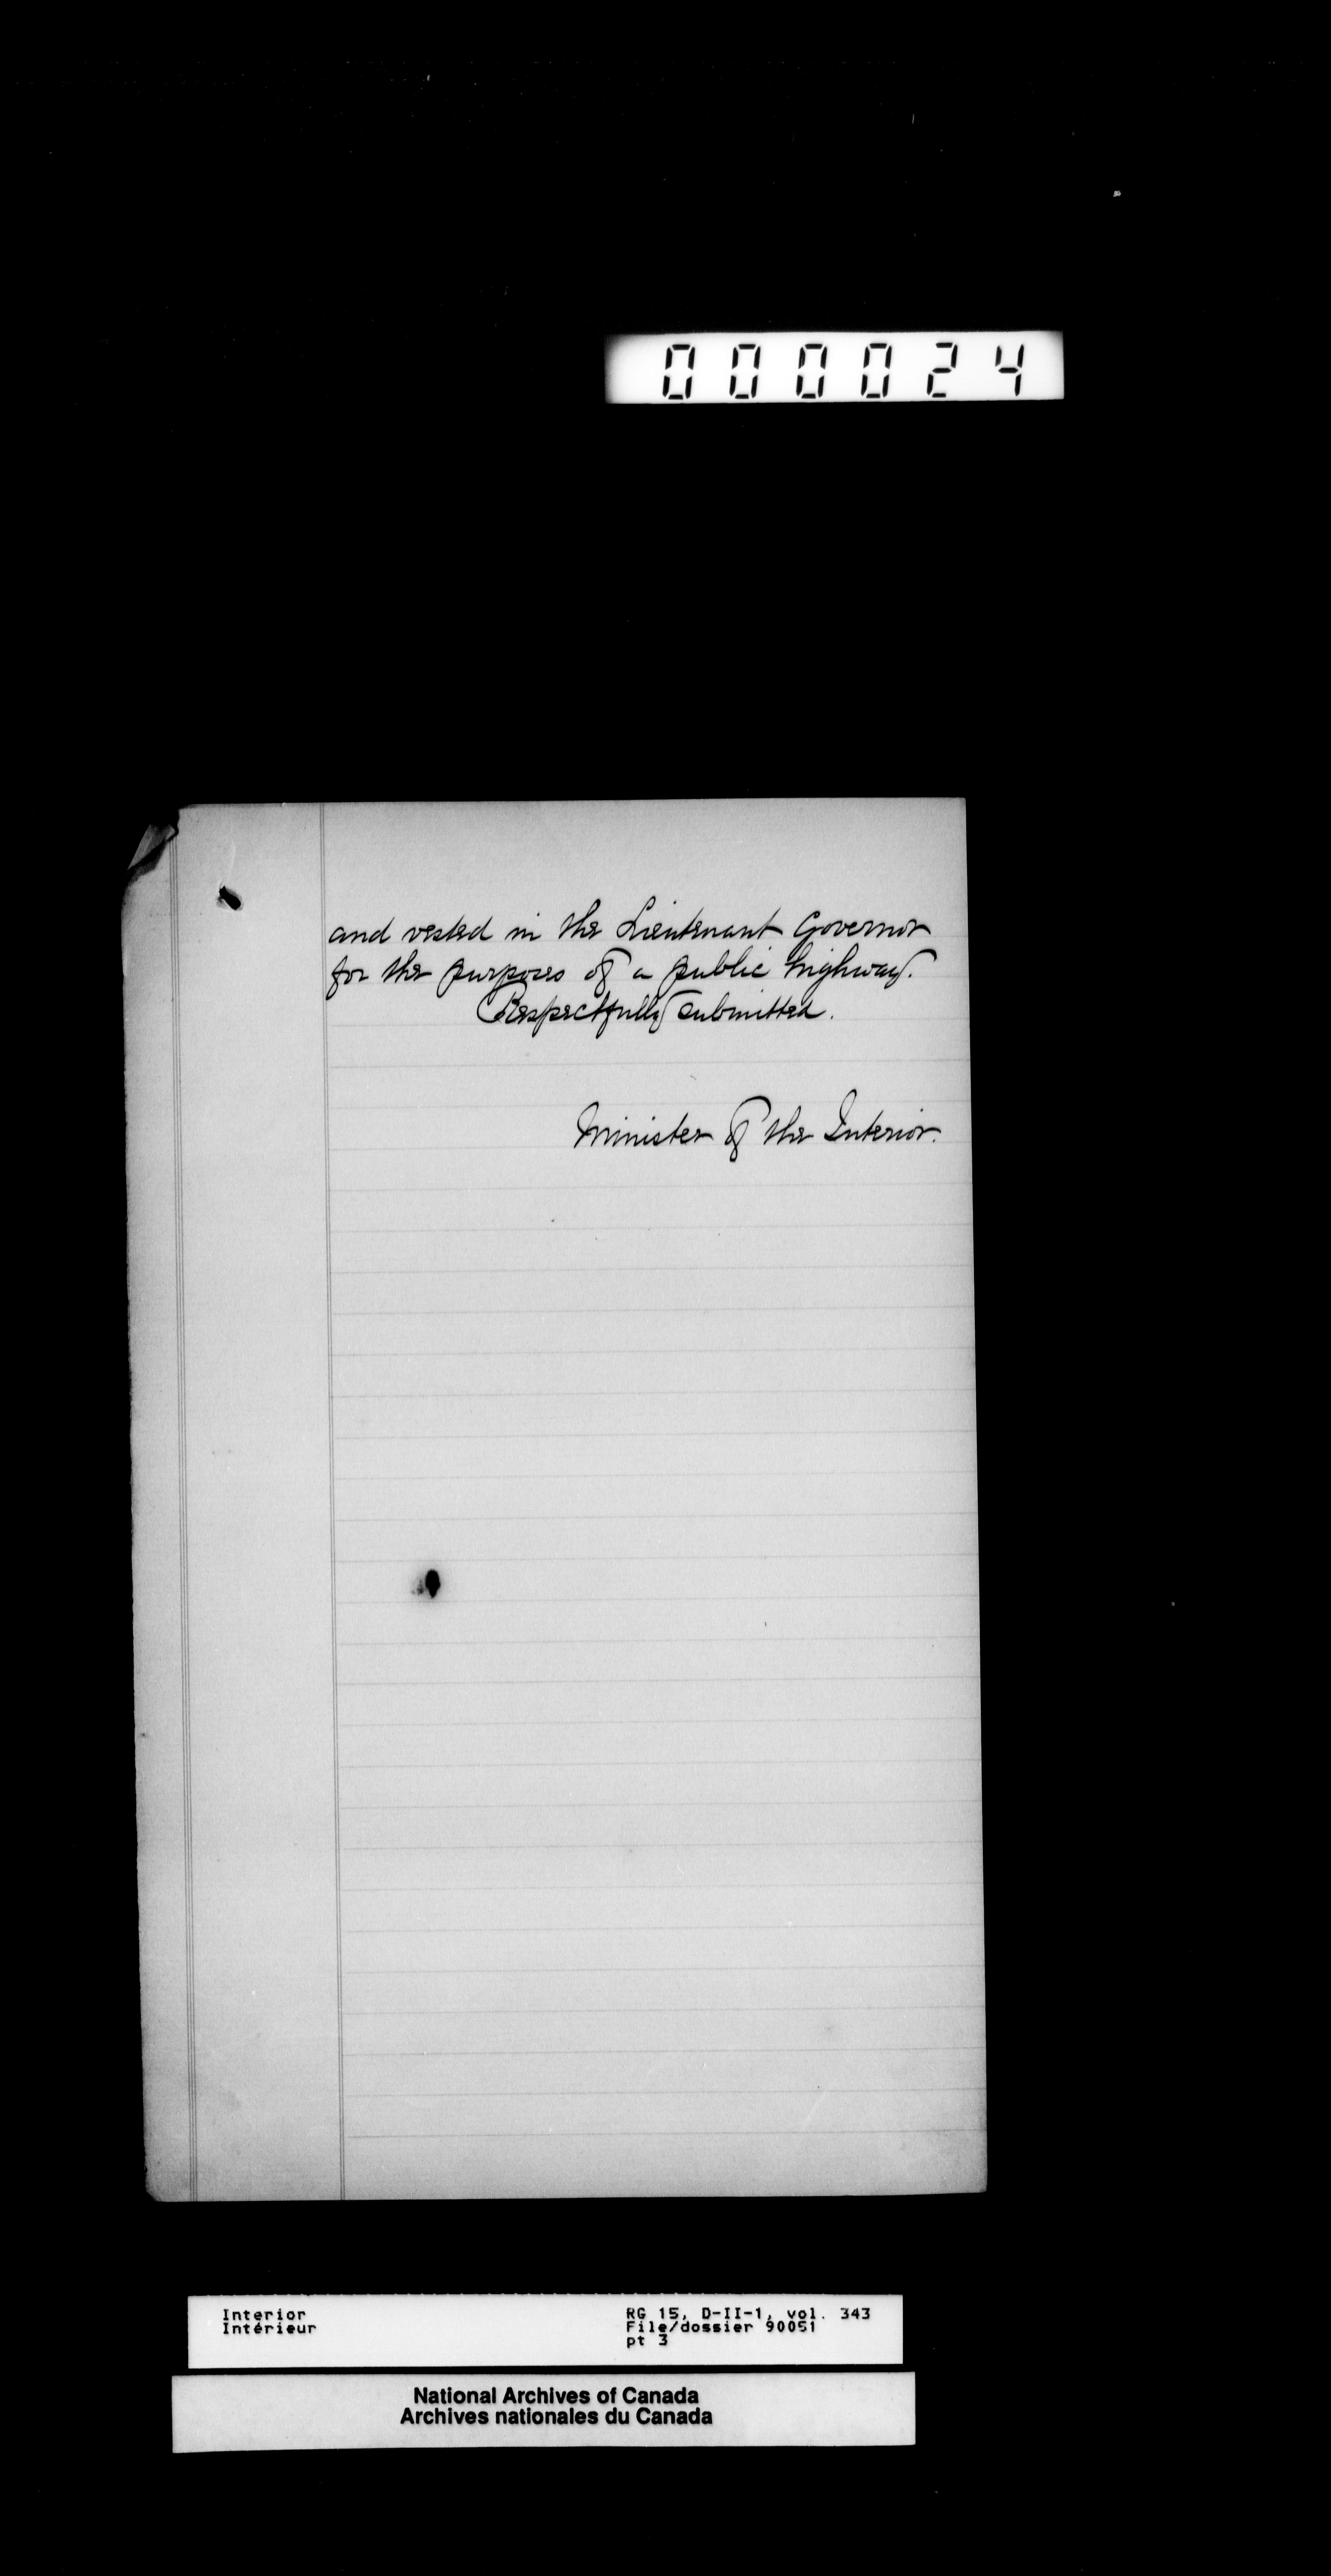 000024
and vested in the Lieutenant Governor
for the purposes of a public highway.
Respectfully submitted.
Minister of the Interior.
Interior
Intérieur
RG 15, D-II-1, vol. 343
File/dossier 90051
pt 3
National Archives of Canada
Archives nationales du Canada